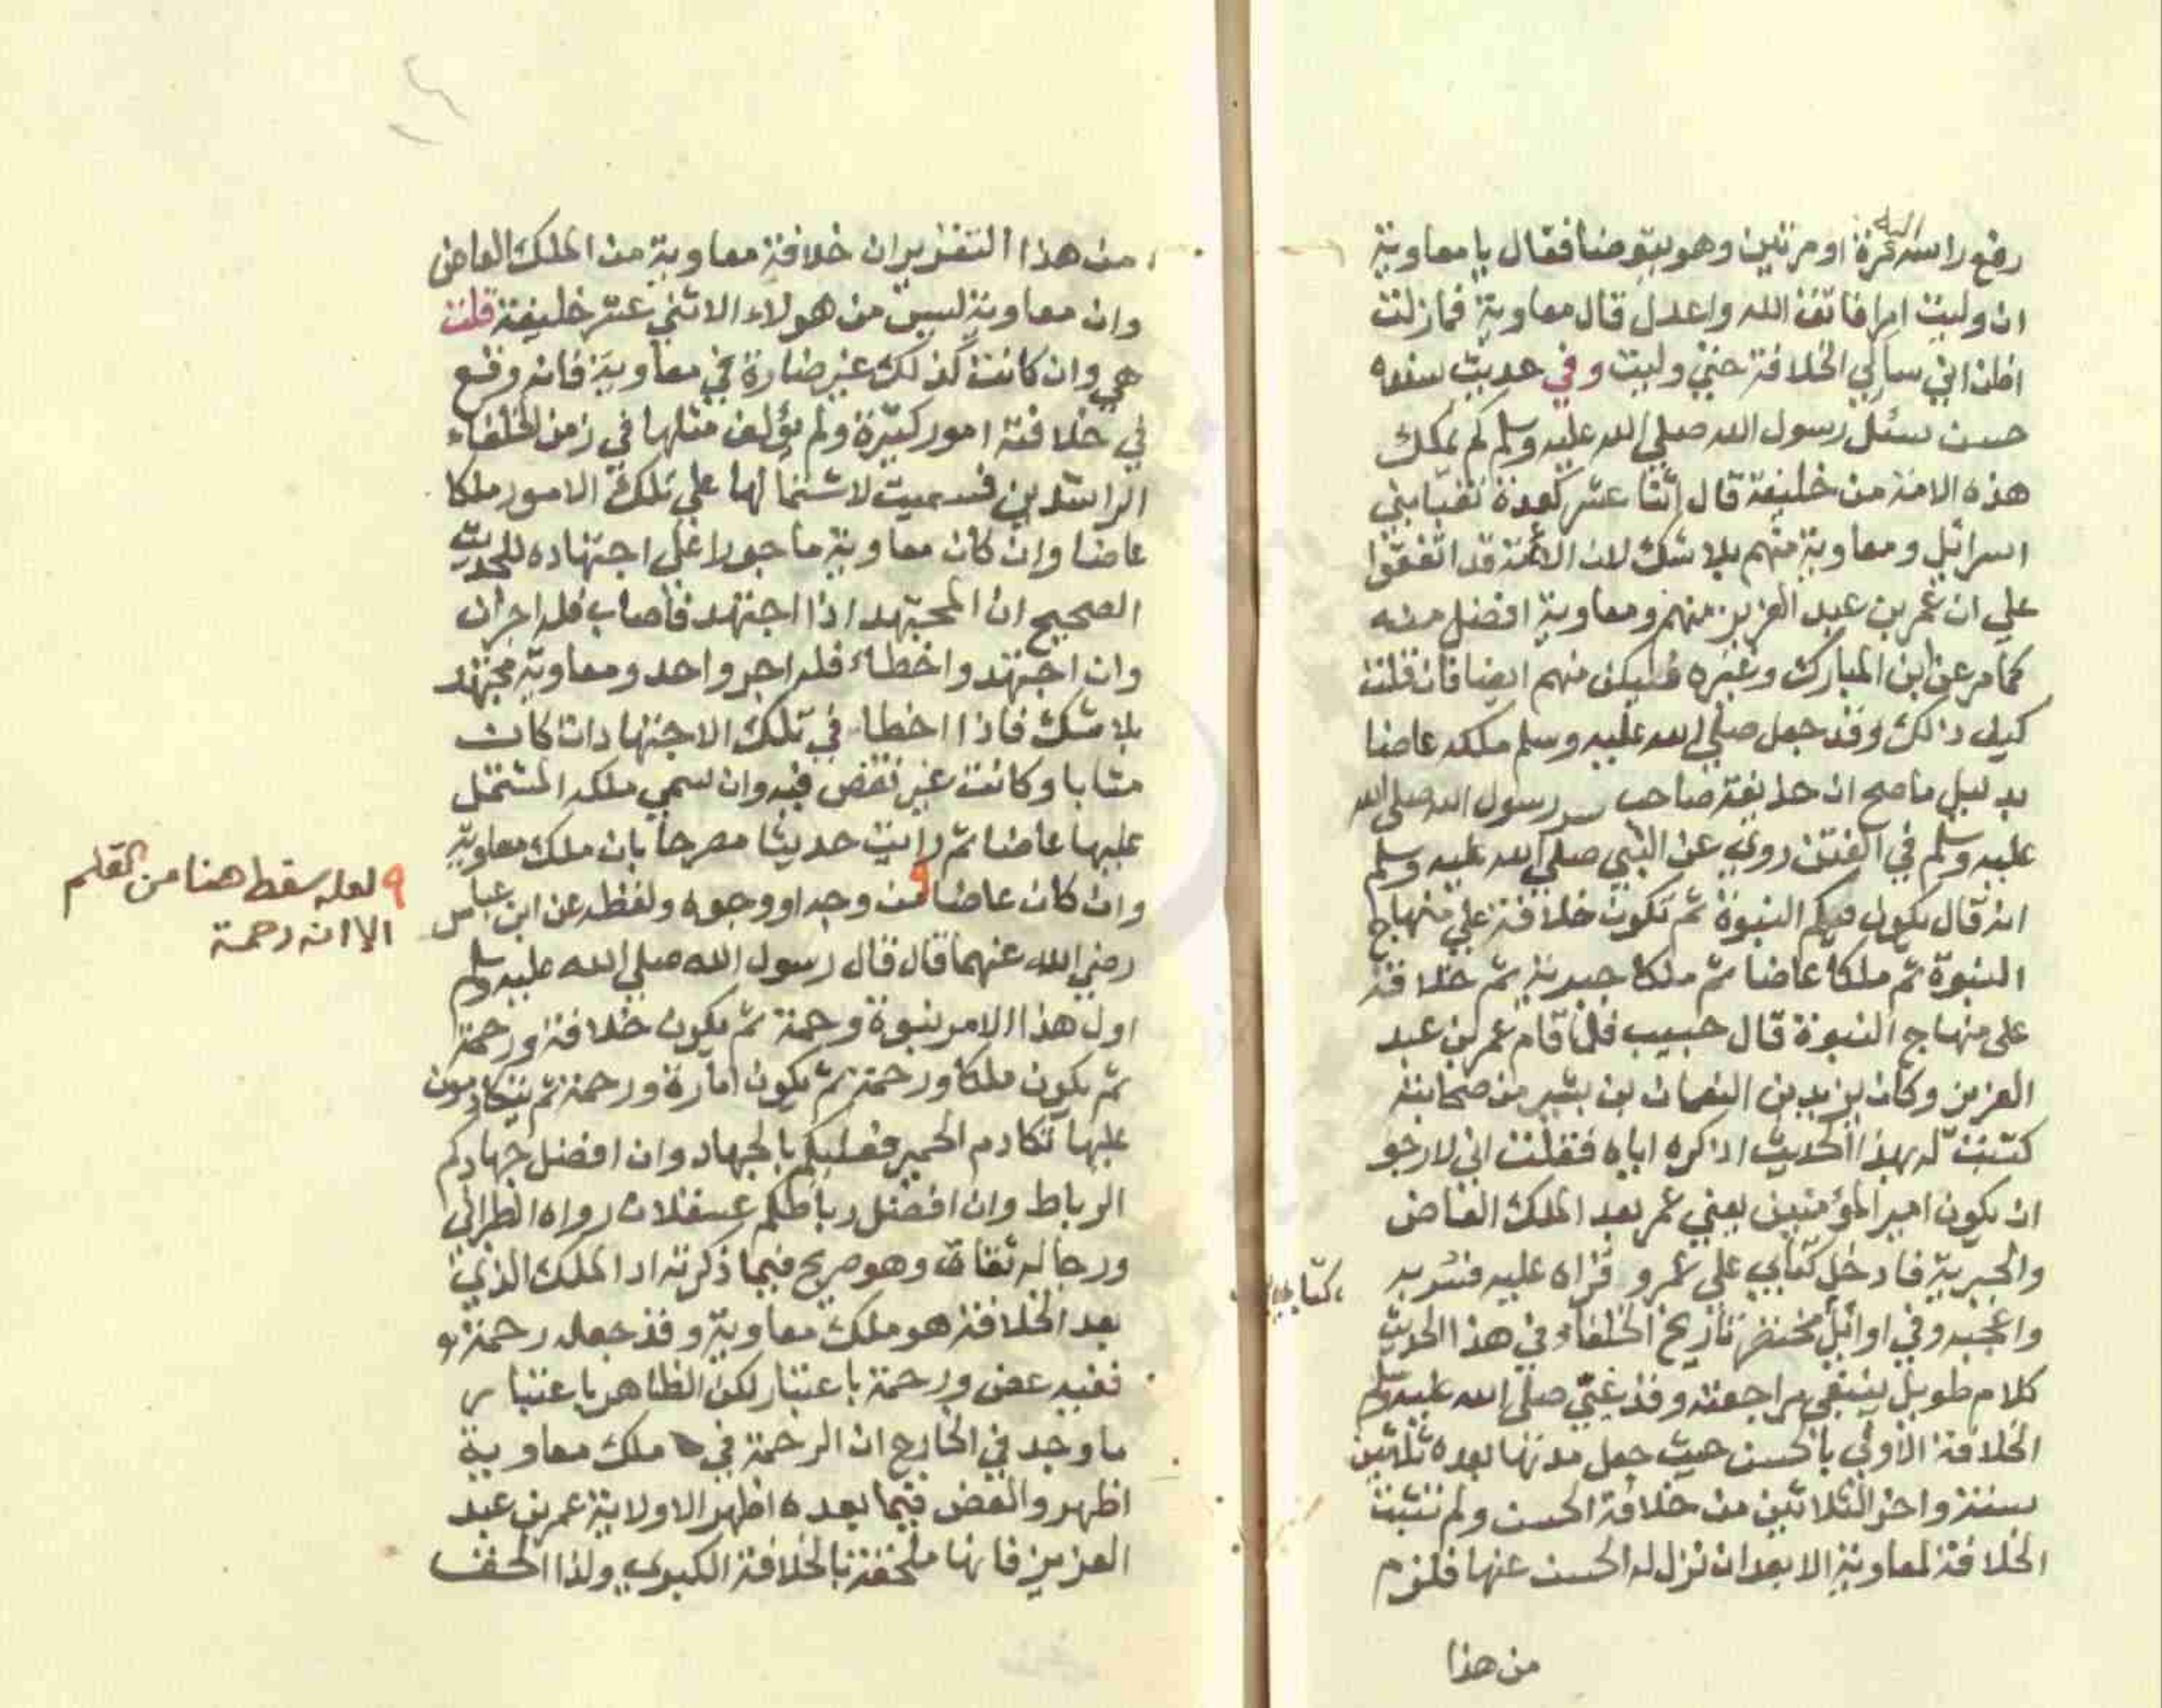 رفع راسه اليه مرة او مرتين وهو يتوضا فقال يا معاوية
ان وليت امرا فاتق الله واعدل قال معاوية فما زلت
اظن اني سألي الخلافة حتى وليت وفي حديث سنده
حسن سئل رسول الله صلى الله عليه وسلم كم يملك
هذه الامة من خليفة قال إثنا عشر كعدة نقبا بني
اسرائيل ومعاوية منهم بلا شك لان الائمة قد اتفقوا
علي ان عمر بن عبد العزيز منهم ومعاوية افضل منه
كما مر عن ابن المبارك وغيره فليكن منهم ايضا فان قلت
كيف ذالك وقد جعل صلى الله عليه وسلم ملكه عاضا
بدليل ما صح ان حذيفة صاحب سر رسول الله صلى الله
عليه وسلم في الفتن روى عن النبي صلى الله عليه وسلم
انه قال يكون فيكم النبوة ثم تكون خلافة علي منهاج
النبوة ثم ملكا عاضا ثم ملكا جبرية ثم خلافة
على منهاج النبوة قال حبيب فلما قام عمر بن عبد
العزيز وكان يزيد بن النعمان بن بشير من صحابته
كتبت له بهذا الحديث اذاكره اياه فقلت اني لارجو
ان يكون امير المؤمنين يعني عمر بعد الملك العاض
والجبرية فادخل كتابي على عمر و قراه عليه فسر به
كتابي
واعجبه وفي اوائل مختصر تاريخ الخلفاء في هذا الحديث
كلام طويل ينبغي مراجعته وقد عني صلى الله عليه وسلم
الخلافة الاولى بالحسن حيث جعل مدتها بعده ثلثين
سنة واخر الثلاثين من خلافة الحسن ولم تثبت
الخلافة لمعاوية الا بعد ان نزل له الحسن عنها فلزم
من هذا
من هذا التقرير ان خلافة معاوية من الملك العاض
وان معاوية ليس من هولاء الاثني عشر خليفة قلت
هي وان كانت كذلك غير ضارة في معاوية فانه وقع
في خلافته امور كثيرة ولم يؤلف مثلها في زمن الخلفاء
الراشدين فسميت لاشتمالها على تلك الامور ملكا
عاضا وان كان معاوية ماجورا على اجتهاده للحديث
الصحيح ان المجتهد اذا اجتهد فاصاب فله اجران
وان اجتهد واخطاء فله اجر واحد ومعاوية مجتهد
بلا شك فاذا اخطا في تلك الاجتهادات كان
مثابا وكانت غير نقض فيه وان سمي ملكه المشتمل
عليها عاضا ثم رأيت حديثا مصرحا بان ملك معاوية
وان كان عاضا ٩ من وجه او وجوه ولفظه عن ابن عباس
٩ لعله سقط هنا من القلم
الا انه رحمة
رضي الله عنهما قال قال رسول الله صلى الله عليه وسلم
اول هذا الامر نبوة ورحمة ثم يكون خلافة ورحمة
ثم يكون ملكا ورحمة ثم يكون امارة ورحمة ثم يتكادمون
عليها تكادم الحمير فعليكم بالجهاد وان افضل جهادكم
الرباط وان افضل رباطكم عسقلان رواه الطبراني
ورجاله ثقات وهو صريح فيما ذكرته اذ الملك الذي
بعد الخلافة هو ملك معاوية وقد جعله رحمة
ففيه عض ورحمة باعتبار لكن الظاهر باعتبار
ما وجد في الخارج ان الرحمة في ملك معاوية
اظهر والعض فيما بعده اظهر الا ولاية عمر بن عبد
العزيز فانها ملحقة بالخلافة الكبرى ولذا الحق